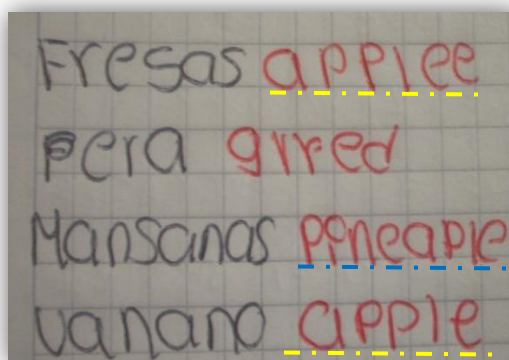 Fresas applee
pera grred
Mansanas ppneaple
vanano apple